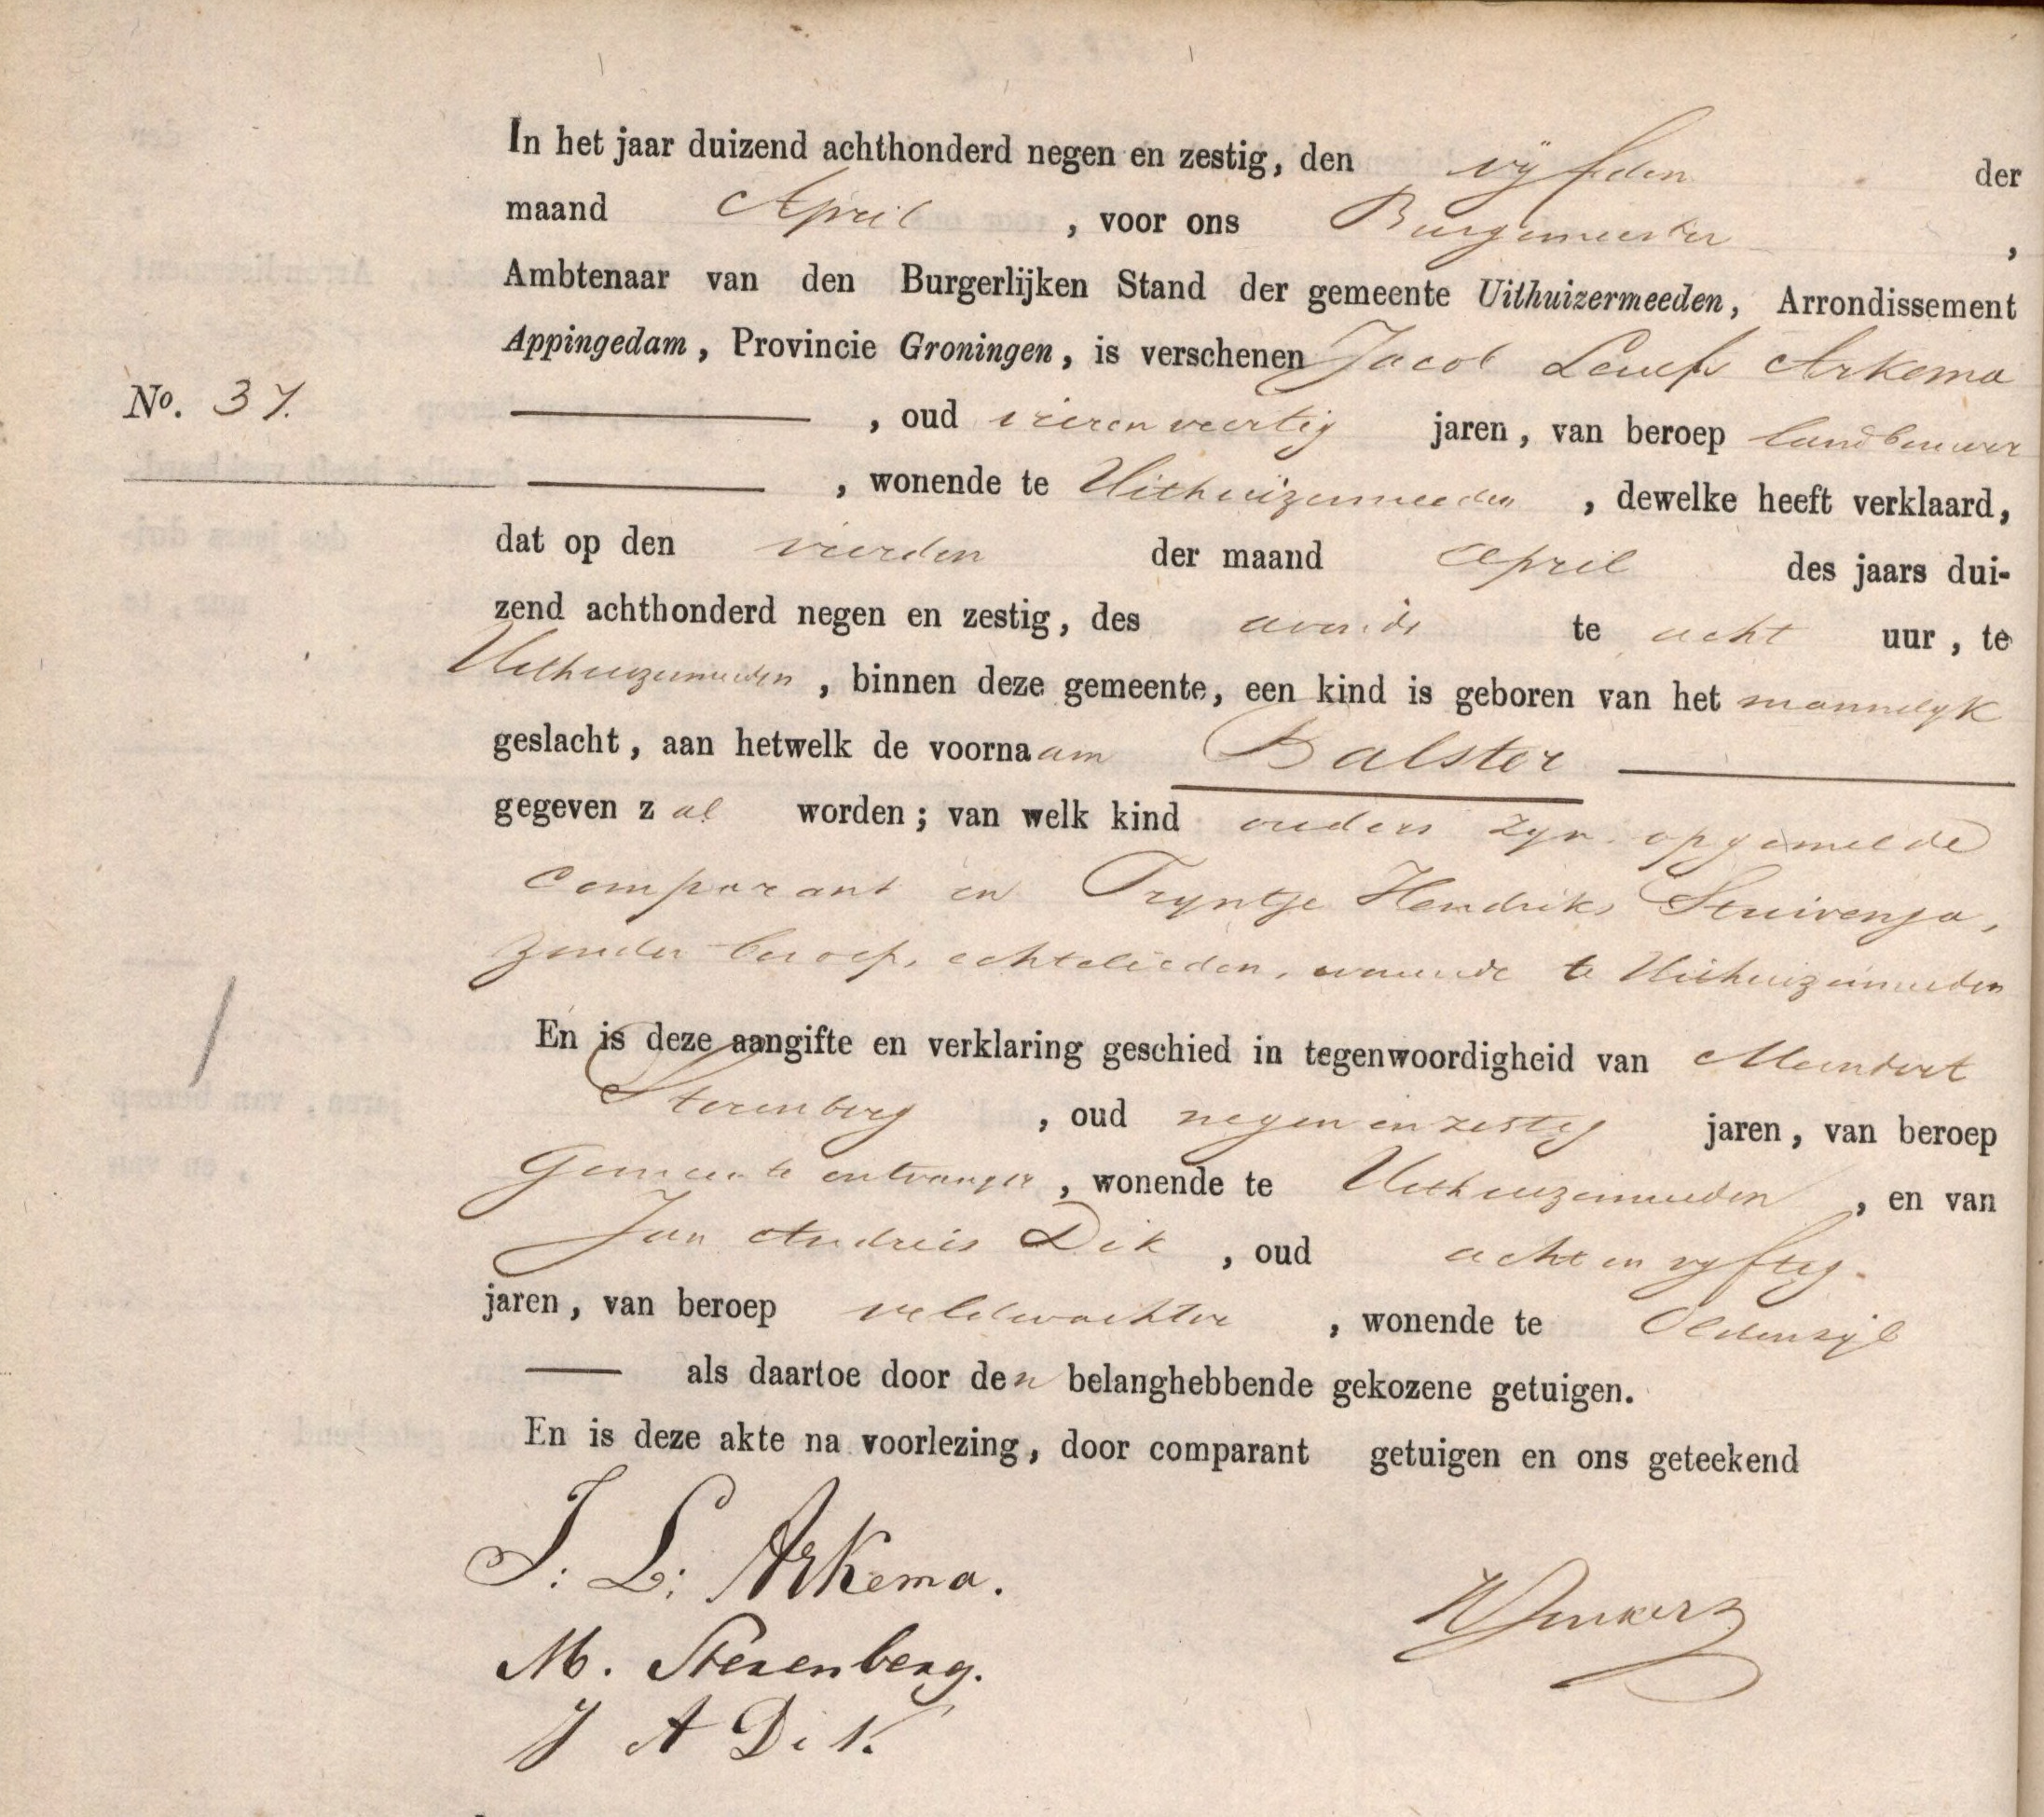 In het jaar duizend achthonderd negen en zestig, den vijfden der
maand April , voor ons Burgemeester ,
Ambtenaar van den Burgerlijken Stand der gemeente Uithuizermeeden, Arrondissement
Appingedam, Provincie Groningen, is verschenen Jacob Leuefs Arkema
No. 37.
, oud vierenveertig jaren, van beroep landbouwer
, wonende te Uithuizermeeden , dewelke heeft verklaard,
dat op den vierden der maand April des jaars dui-
zend achthonderd negen en zestig, des avonds te acht uur, te
Uithuizermeeden , binnen deze gemeente, een kind is geboren van het mannelyk
geslacht, aan hetwelk de voornaam Balster
gegeven zal worden; van welk kind ouders zyn opgemelde
comparant en Tryntje Hendriks Stuivenga,
zonder beroep, echtelieden, wonende te Uithuizermeeden
En is deze aangifte en verklaring geschied in tegenwoordigheid van Meindert
Sterenberg , oud negen en zestig jaren, van beroep
Gemeente ontvanger , wonende te Uithuizermeeden , en van
Jan Andreis Dik , oud acht en vyftig
jaren, van beroep veldwachter , wonende te Oldenzijl
als daartoe door den belanghebbende gekozene getuigen.
En is deze akte na voorlezing, door comparant getuigen en ons geteekend
J: L: Arkema.
M. Sterenberg.
J A Dik